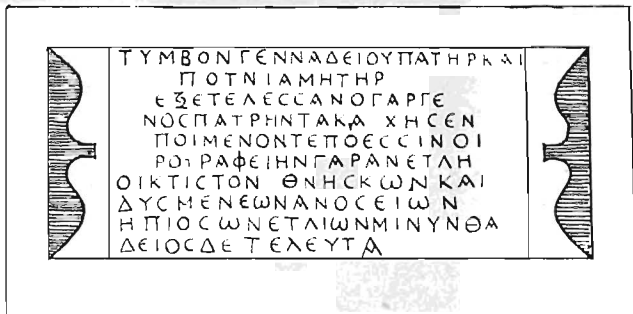 ΤΥΜΒΟΝΓΕΝΝΑΔΕΙΟΥΠΑΤΗΡΚΑΙ
ΠΟΤΝΙΑΜΗΤΗΡ
ΕΞΕΤΕΛΕCCΑΝΟΓΑΡΓΕ
ΝΟCΠΑΤΡΗΝΤΑΚΑ ΧΗCΕΝ
ΠΟΙΜΕΝΟΝΤΕΠΟΕCCΙΝΟΙ
ΡΟΤΡΑΦΕΙΗΝΓΑΡΑΝΕΤΛΗ
ΟΙΚΤΙCΤΟΝ ΘΝΗCΚΩΝΚΑΙ
ΔΥCΜΕΝΕΩΝΑΝΟCΕΙΩΝ
ΗΠΙΟCΩΝΕΤΛΙΩΝΜΙΝΥΝΘΑ
ΔΕΙΟCΔΕ ΤΕΛΕΥΤΑ